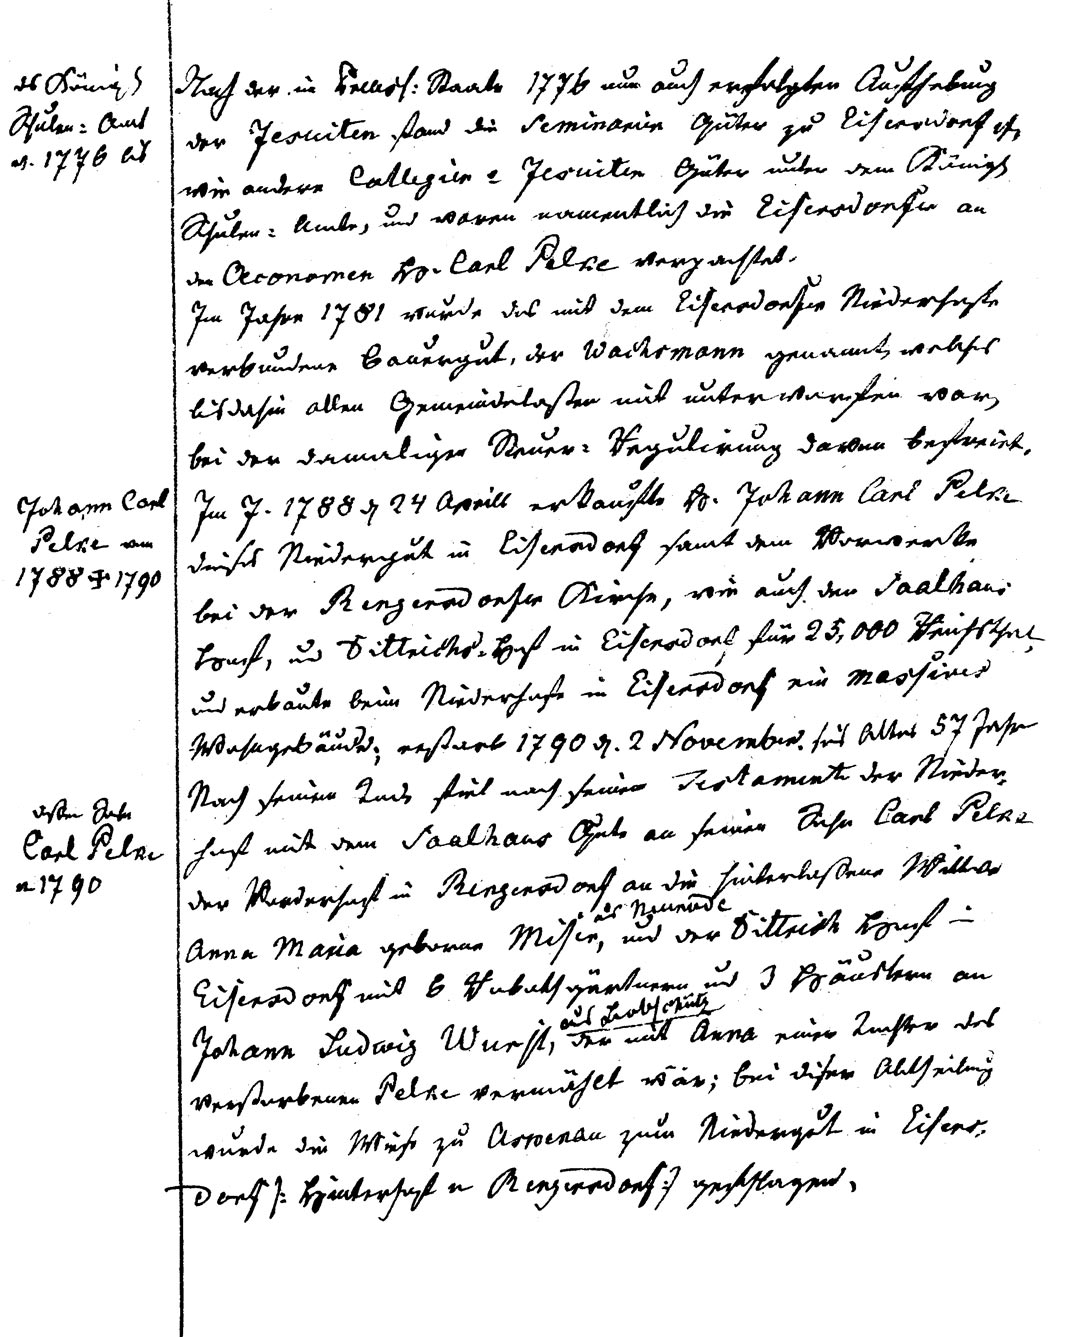 des Königl
Schulen= Amt
v. 1776 bis
Nach der in Preuss: Staate 1776 nun auch erfolgten Aufhebung
der Jesuiten stand die Seminarien Güter zu Eisersdorf
wie andere Collegien = Jesuiten Güter unter dem Königl
Schulen= Amte, und waren namentlich die Eisersdorfer an
den Oeconomen H. Carl Pelke verpachtet.
Im Jahre 1781 wurde das mit dem Eisersdorfer Niederhofe
verbundene Bauergut, der Wachsmann genannt, welches
bisdahin allen Gemeindelasten mit unterworfen war,
bei der damaligen Steuer= Regulirung davon befreiet.
Johann Carl
Pelke von
1788 ✠ 1790
Im J. 1788 d 24 Aprill erkaufte H. Johann Carl Pelke
dieses Niedergut in Eisersdorf samt dem Vorwerke
bei der Rengersdorfer Kirche, wie auch den Saalhaus
Hof, und Dittrichs=Hof in Eisersdorf für 25,000 Reichsthal,
und erbaute beim Niederhofe in Eisersdorf ein massives
Wohngebäude; er starb 1790 d. 2 November. seis Alters 57 Jahr
dessen Sohn
Carl Pelke
v 1790
Nach seinem Tode fiel nach seinem Testamente der Nieder=
hof mit dem Saalhaus Gute an seinen Sohn Carl Pelke
der Vorderhof in Rengersdorf an die hinterlassene Wittwe
Anna Maria geborne Misie, aus Neurode und der Dittrich Hof in
Eisersdorf mit 6 Robothgärtnern und 3 Häuslern an
Johann Ludwig Wurst, aus Leobschütz der mit Anna einer Tochter des
verstorbenen Pelke vermählt war; bei dieser Abtheilung
wurde die Wiese zu Aspenau zum Niedergut in Eisers=
dorf /: Hinterhof v Rengersdorf :/ geschlagen.